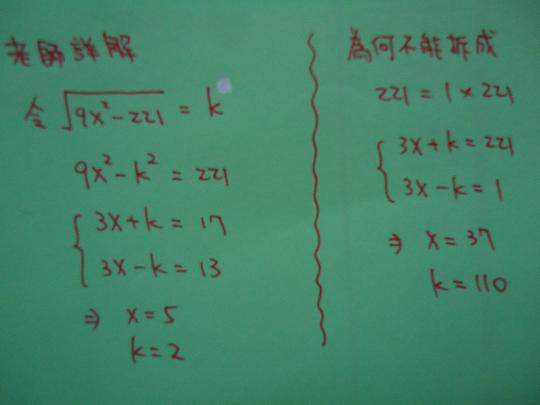 老師詳解
令 √(9x²-221) = k
9x²-k² = 221
{ 3x+k = 17
3x-k = 13
⇒ x=5
k=2
為何不能拆成
221 = 1 × 221
{ 3x+k = 221
3x-k = 1
⇒ x=37
k=110